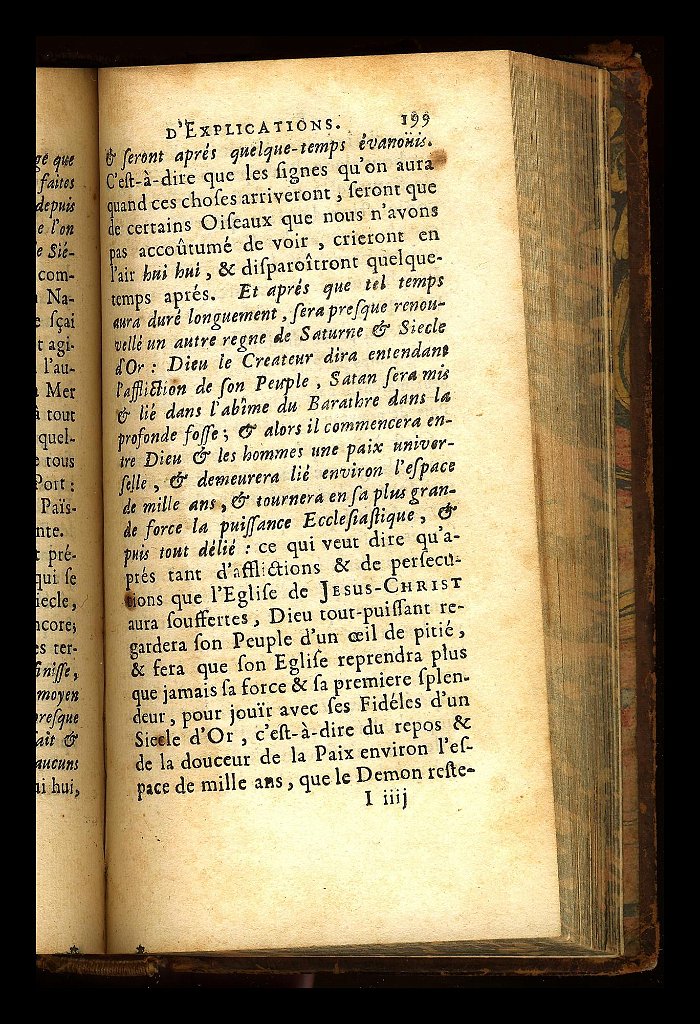 ge que
faites
depuis
e l'on
e Sié-
com-
Na-
e ſçai
t agi-
l'au-
Mer
à tout
quel-
e tous
Port :
Païs-
nte.
pré-
qui ſe
iecle,
ncore;
es ter-
finiſſe,
moyen
presque
fait &
aucuns
ui hui,
D'EXPLICATIONS. 199
& ſeront aprés quelque-temps évanoüis.
C'eſt-à-dire que les ſignes qu'on aura
quand ces choſes arriveront, ſeront que
de certains Oiſeaux que nous n'avons
pas accoûtumé de voir, crieront en
l'air hui hui, & diſparoîtront quelque-
temps aprés. Et aprés que tel temps
aura duré longuement, ſera preſque renou-
vellé un autre regne de Saturne & Siecle
d'Or : Dieu le Createur dira entendant
l'affliction de ſon Peuple, Satan ſera mis
& lié dans l'abîme du Barathre dans la
profonde foſſe; & alors il commencera en-
tre Dieu & les hommes une paix univer-
ſelle, & demeurera lié environ l'eſpace
de mille ans, & tournera en ſa plus gran-
de force la puiſſance Eccleſiaſtique, &
puis tout délié : ce qui veut dire qu'a-
prés tant d'afflictions & de perſecu-
tions que l'Egliſe de JESUS-CHRIST
aura ſouffertes, Dieu tout-puiſſant re-
gardera ſon Peuple d'un œil de pitié,
& fera que ſon Egliſe reprendra plus
que jamais ſa force & ſa premiere ſplen-
deur, pour jouïr avec ſes Fidéles d'un
Siecle d'Or, c'eſt-à-dire du repos &
de la douceur de la Paix environ l'eſ-
pace de mille ans, que le Demon reſte-
I iiij